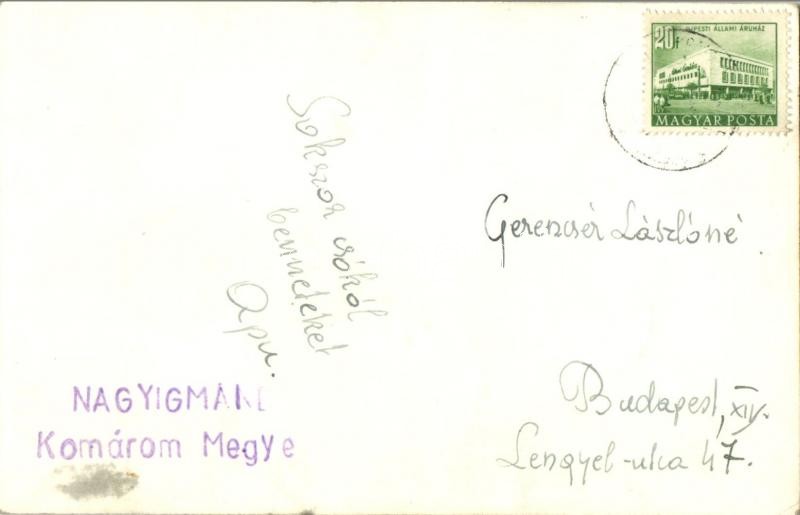 20f
PESTI ÁLLAMI ÁRUHÁZ
MAGYAR POSTA
Sokszor csókol
benneteket
Apu.
Gerencsér Lászlóné
Budapest, XIV.
Lengyel-utca 47.
NAGYIGMÁND
Komárom Megye